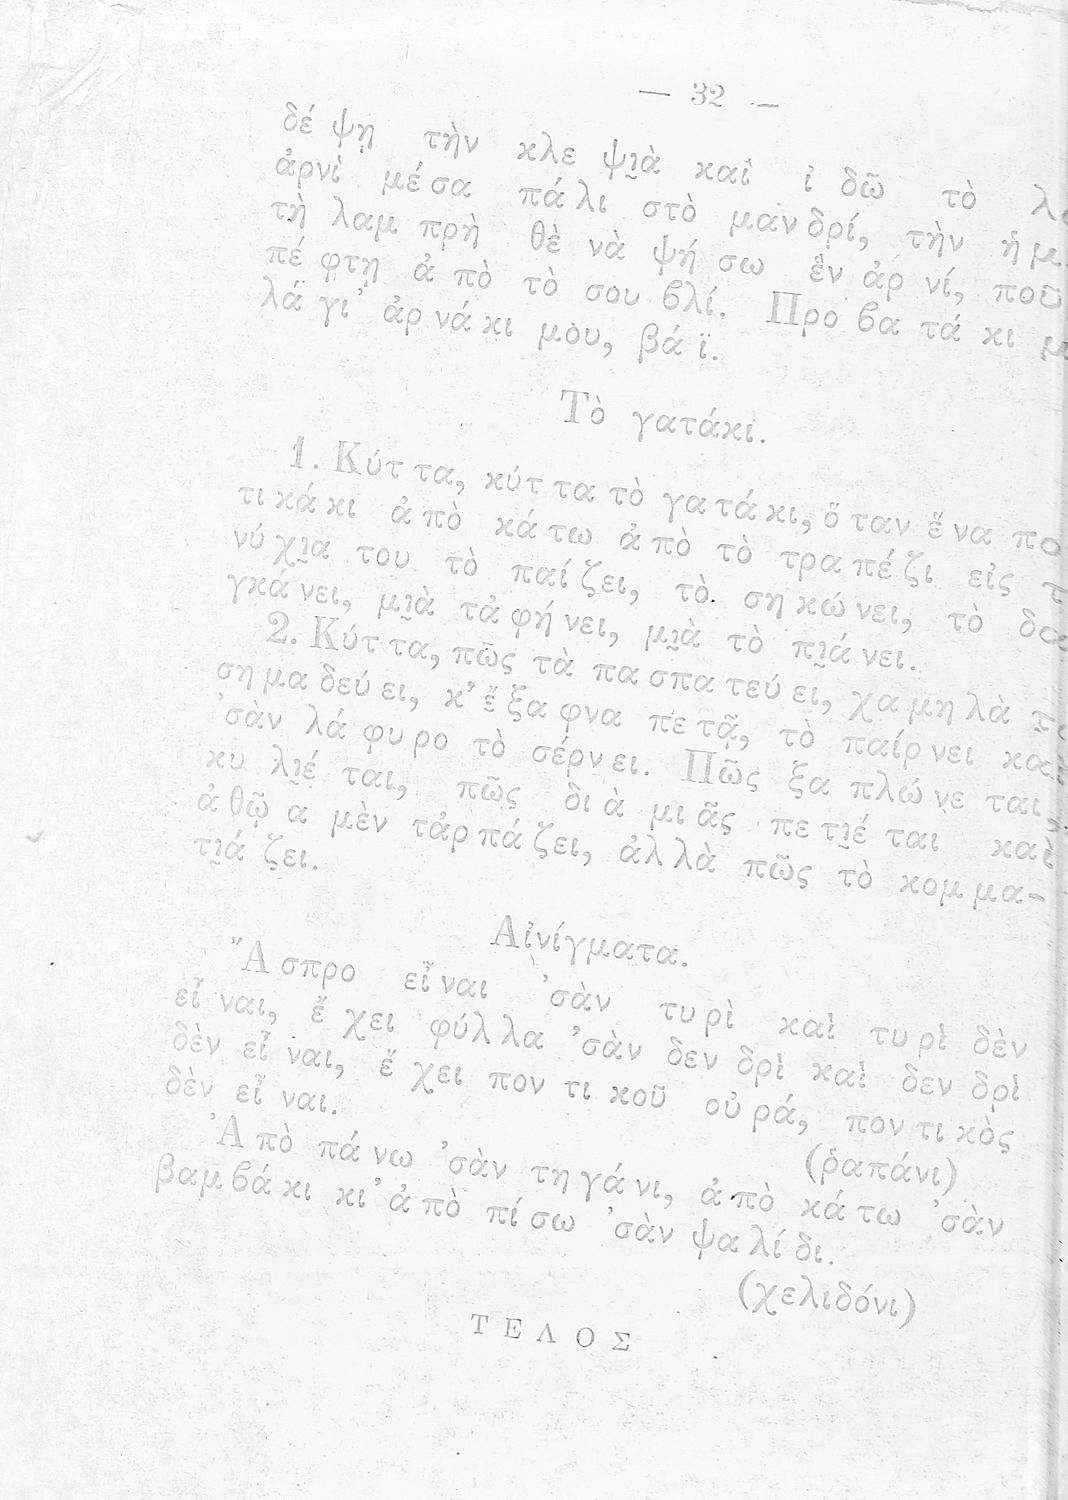 — 32 —
δέ ψῃ τὴν κλε ψι̯ὰ καὶ ἰ δῶ τὸ
ἀρνὶ μέ σα πά λι στὸ μαν δρί, τὴν
τὴ λαμ πρὴ θὲ νὰ ψή σω ἓν ἀρ νί, ποῦ
πέ φτῃ ἀ πὸ τὸ σου βλί. Προ βα τά κι
λά γι' ἀρ νά κι μου, βά ϊ.
Τὸ γατάκι.
1. Κύτ τα, κύτ τα τὸ γα τά κι, ὅ ταν ἕ να πο
τι κά κι ἀ πὸ κά τω ἀ πὸ τὸ τρα πέ ζι εἰς
νύ χι̯α του τὸ παί ζει, τὸ ση κώ νει, τὸ δα
γκά νει, μι̯ὰ τἀ φή νει, μι̯ὰ τὸ πι̯ά νει.
2. Κύτ τα, πῶς τὰ πα σπα τεύ ει, χα μη λὰ
ση μα δεύ ει, κ' ἔ ξα φνα πε τᾷ, τὸ παίρ νει καὶ
'σὰν λά φυ ρο τὸ σέρν ει. Πῶς ξα πλώ νε ται,
κυ λι̯έ ται, πῶς δι ὰ μι ᾶς πε τι̯έ ται καὶ
ἀ θῷ α μὲν τἀρ πά ζει, ἀλ λὰ πῶς τὸ κομ μα-
τι̯ά ζει.
Αἰνίγματα.
Ἄ σπρο εἶ ναι 'σὰν τυ ρὶ καὶ τυ ρὶ δὲν
εἶ ναι, ἔ χει φύλ λα 'σὰν δεν δρὶ καὶ δεν δρὶ
δὲν εἶ ναι, ἔ χει πον τι κοῦ οὐ ρά, πον τι κὸς
δὲν εἶ ναι.
(ῥαπάνι)
Ἀ πὸ πά νω 'σὰν τη γά νι, ἀ πὸ κά τω 'σὰν
βαμ βά κι κι' ἀ πὸ πί σω 'σὰν ψα λί δι.
(χελιδόνι)
ΤΕΛΟΣ